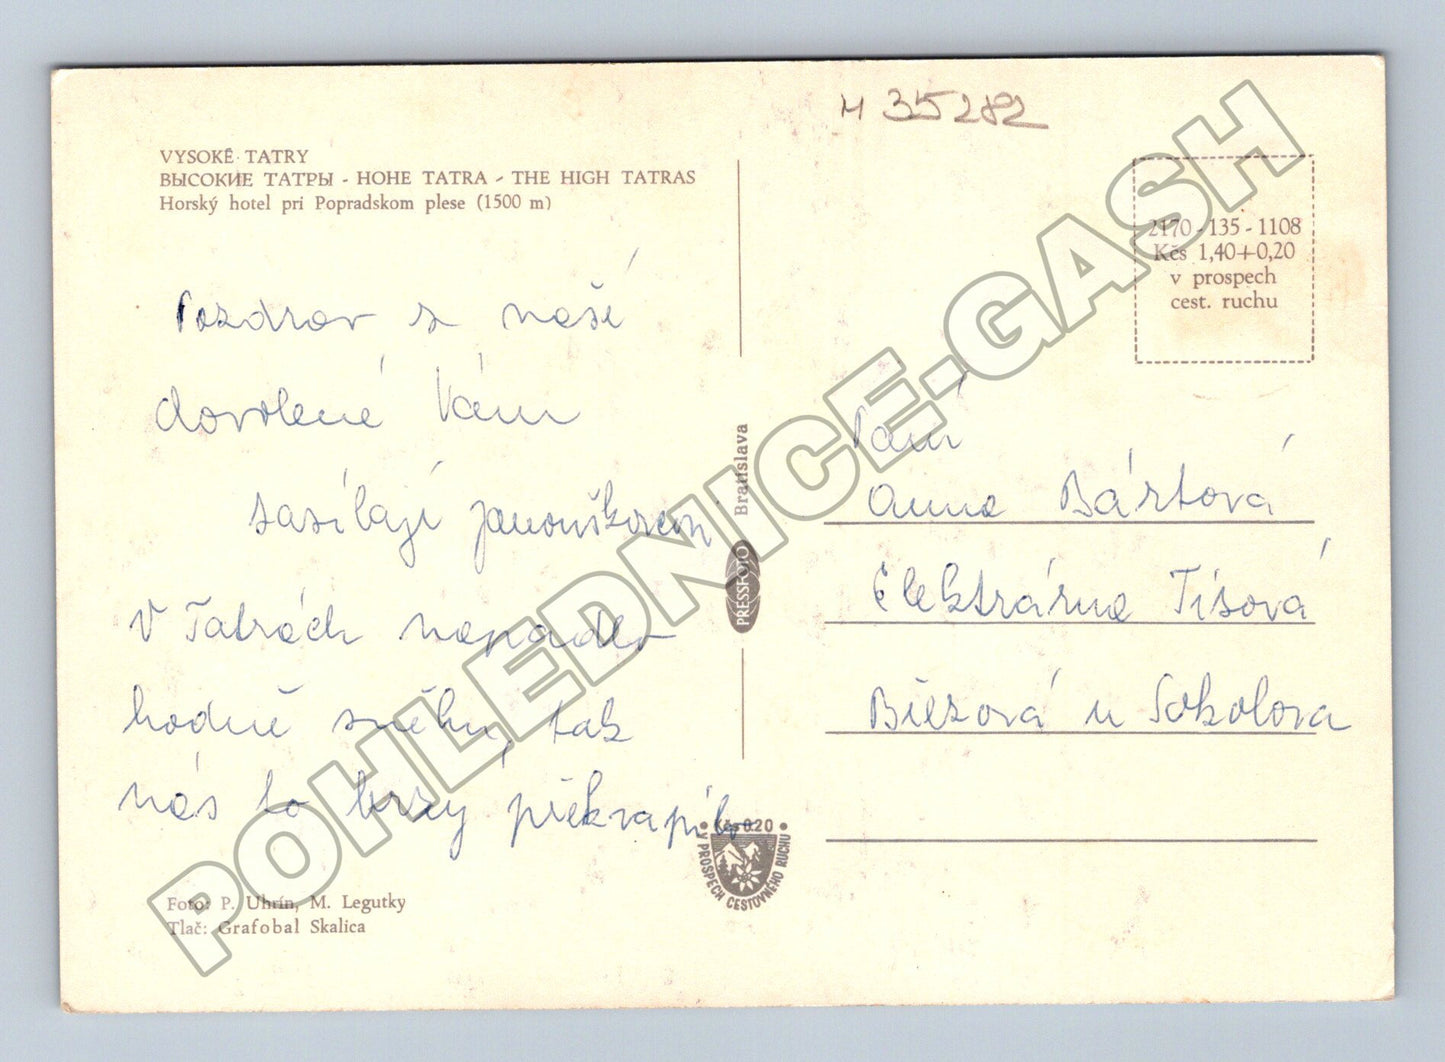 M 35282
VYSOKÉ TATRY
ВЫСОКИЕ ТАТРЫ - HOHE TATRA - THE HIGH TATRAS
Horský hotel pri Popradskom plese (1500 m)
Pozdrav z naší
dovolené Vám
zasílají Janouškovi
V Tatrách napadlo
hodně sněhu, tak
nás to brzy překvapilo
Foto: P. Uhrín, M. Legutky
Tlač: Grafobal Skalica
PRESSFOTO Bratislava
Kčs 0.20
V PROSPECH CESTOVNÉHO RUCHU
2170 - 135 - 1108
Kčs 1,40+0,20
v prospech
cest. ruchu
Paní
Anna Bártová
Elektrárna Tisová
Březová u Sokolova
POHLEDNICE-GASH